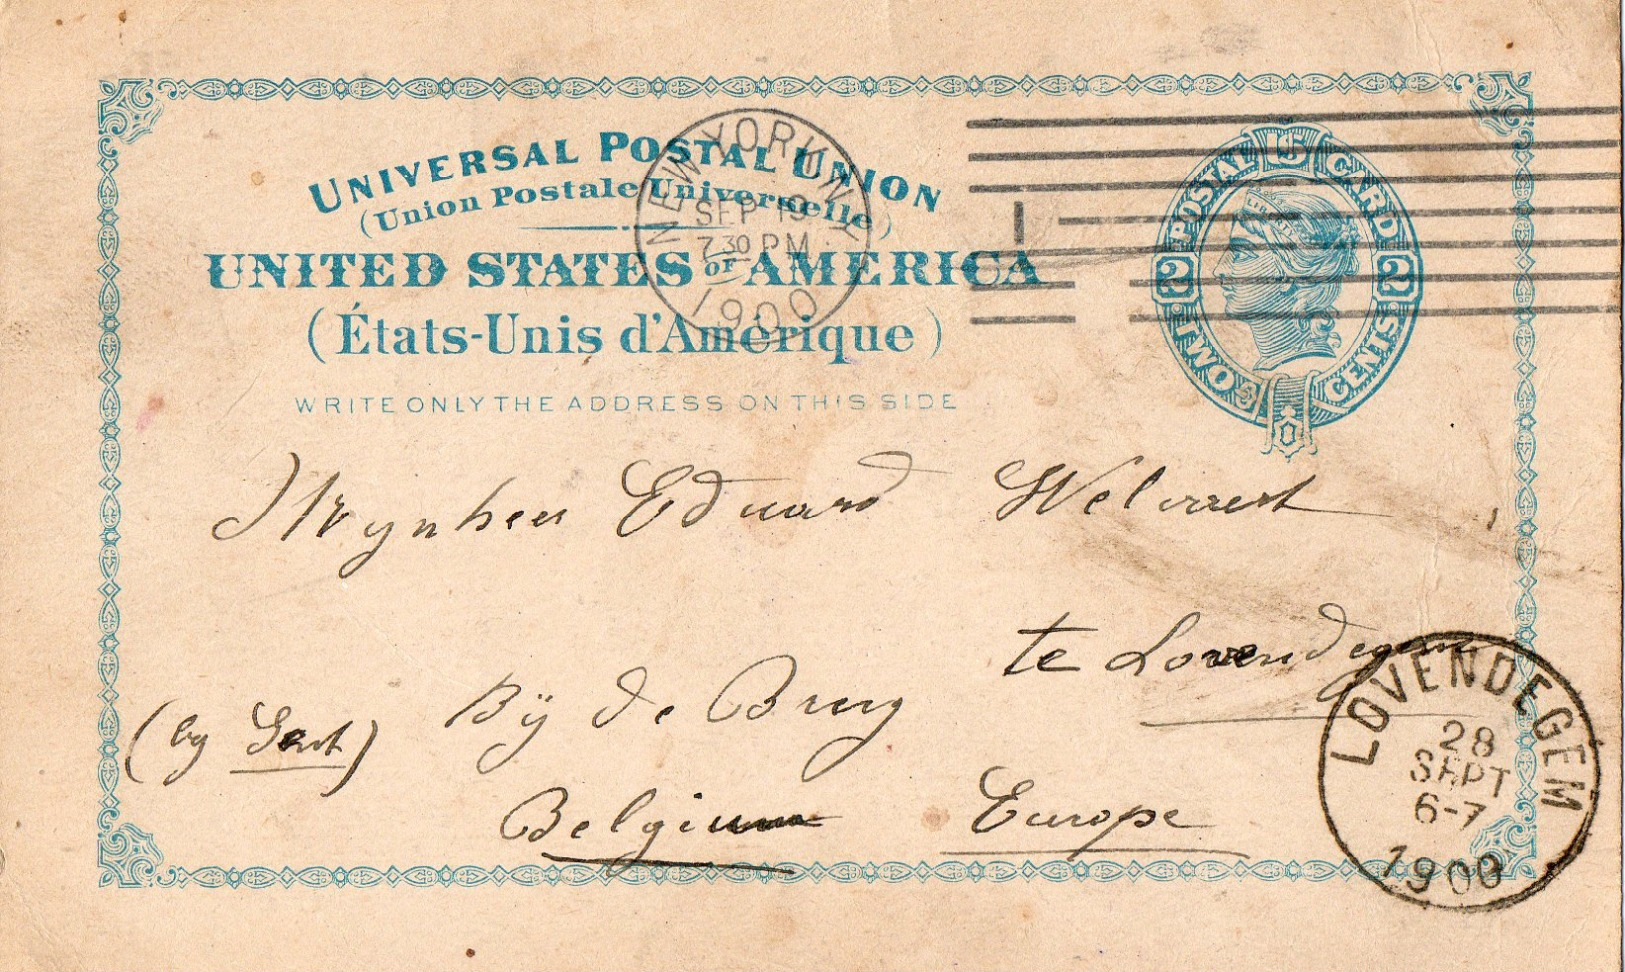 UNIVERSAL POSTAL UNION
(Union Postale Universelle)
UNITED STATES OF AMERICA
(États-Unis d'Amérique)
WRITE ONLY THE ADDRESS ON THIS SIDE
NEW YORK N.Y.
SEP 19
7 30 PM
1900
1
POSTAL CARD
2 2
TWO CENTS
Mynheer Eduard
te Lovendegem
Bij de Brug
(by Gent)
Belgium Europe
LOVENDEGEM
28
SEPT
6-7
1900